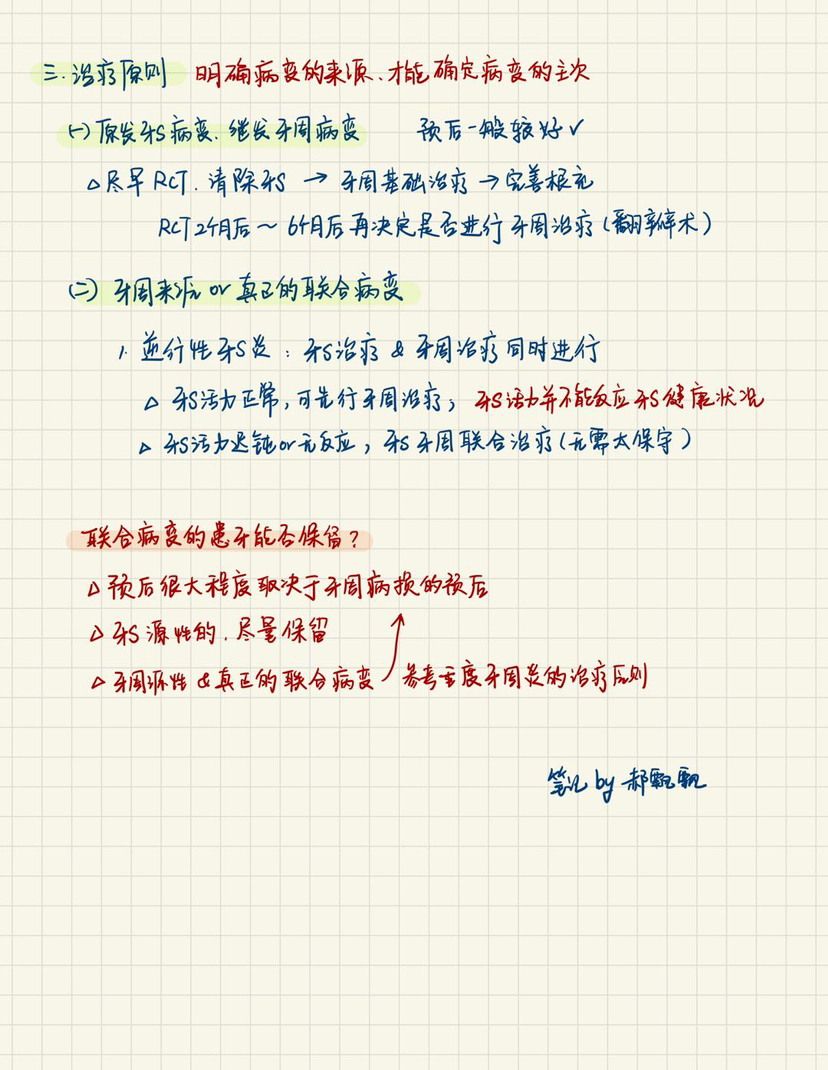 三.治疗原则 明确病变的来源、才能确定病变的主次
(一)原发牙S病变.继发牙周病变 预后一般较好✓
△尽早RCT.清除牙S → 牙周基础治疗 → 完善根充
RCT2个月后～6个月后再决定是否进行牙周治疗(翻瓣术)
(二)牙周来源or真正的联合病变
1.逆行性牙S炎：牙S治疗 & 牙周治疗同时进行
△ 牙S活力正常,可先行牙周治疗；牙S活力并不能反应牙S健康状况
△ 牙S活力迟钝or无反应，牙S牙周联合治疗(无需太保守)
联合病变的患牙能否保留？
△预后很大程度取决于牙周病损的预后
△牙S源性的.尽量保留
△牙周源性&真正的联合病变 参考重度牙周炎的治疗原则
笔记 by 郝飘飘